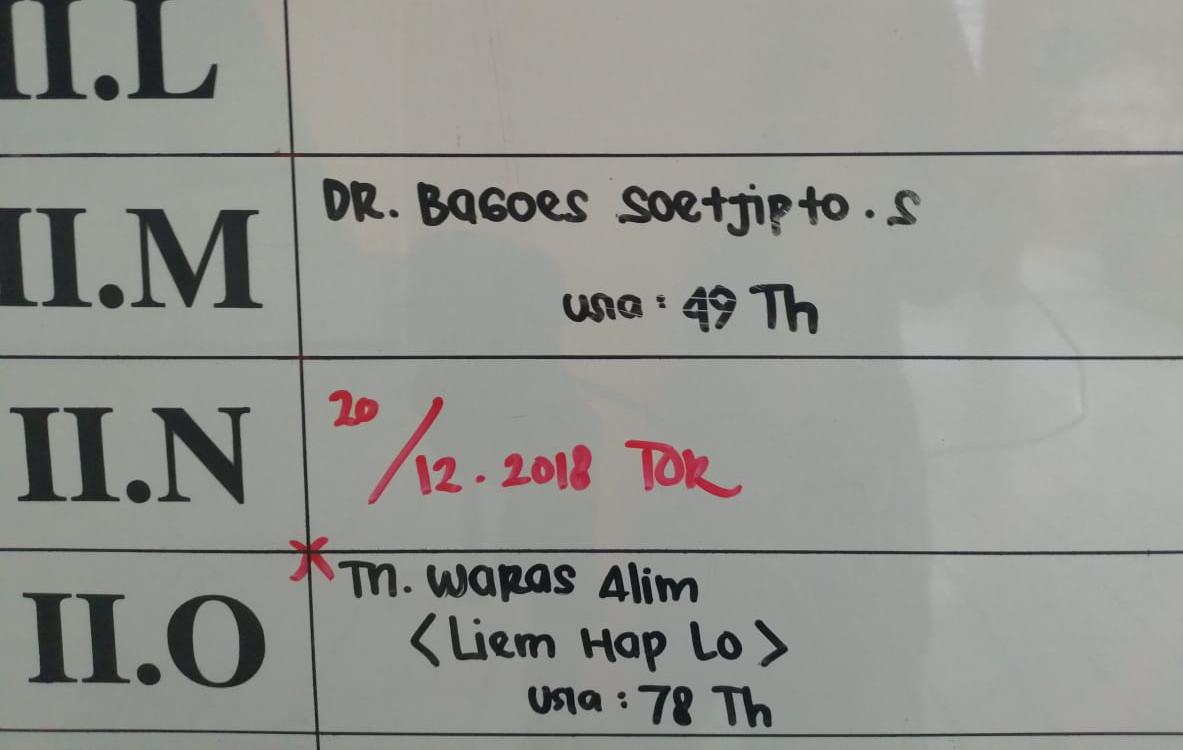 II.L
II.M
DR. BAGOES Soetjipto. S
usia : 49 Th
II.N
20/12.2018 TOR
II.O
Tn. WARAS Alim
<Liem Hap Lo>
usia : 78 Th